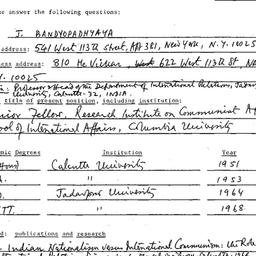 e answer the following questions:
J. BANDYOPADHYAYA
address: 541 West 113th Street, Apt 3B1, New York, N.Y. 10025
ess address: 810 McVickar, 622 West 113th St, N
Y. 10025
: Professor & Head of the Department of International Relations, Jadav
University, Calcutta-32, INDIA.
title of present position, including institution:
nior Fellow, Research Institute on Communist A
ool of International Affairs, Columbia University
mic Degrees Institution Year
Hons) Calcutta University 1951
A. " 1953
D. Jadavpur University 1964
ITT. " 1968
d: publications and research
. Indian Nationalism versus International Communism: the Role